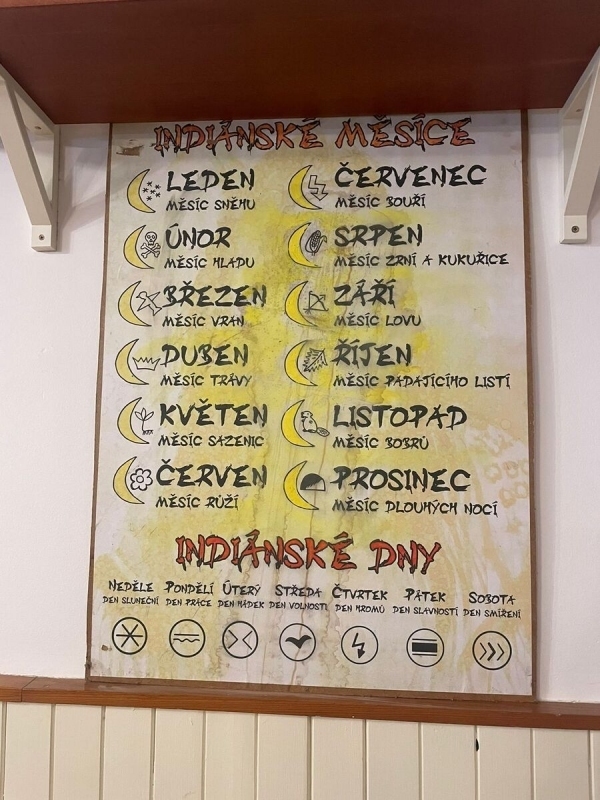 INDIÁNSKÉ MĚSÍCE
LEDEN
MĚSÍC SNĚHU
ÚNOR
MĚSÍC HLADU
BŘEZEN
MĚSÍC VRAN
DUBEN
MĚSÍC TRÁVY
KVĚTEN
MĚSÍC SAZENIC
ČERVEN
MĚSÍC RŮŽÍ
ČERVENEC
MĚSÍC BOUŘÍ
SRPEN
MĚSÍC ZRNÍ A KUKUŘICE
ZÁŘÍ
MĚSÍC LOVU
ŘÍJEN
MĚSÍC PADAJÍCÍHO LISTÍ
LISTOPAD
MĚSÍC BOBRŮ
PROSINEC
MĚSÍC DLOUHÝCH NOCÍ
INDIÁNSKÉ DNY
NEDĚLE
DEN SLUNEČNÍ
PONDĚLÍ
DEN PRÁCE
ÚTERÝ
DEN HÁDEK
STŘEDA
DEN VOLNOSTI
ČTVRTEK
DEN HROMŮ
PÁTEK
DEN SLAVNOSTÍ
SOBOTA
DEN SMÍŘENÍ